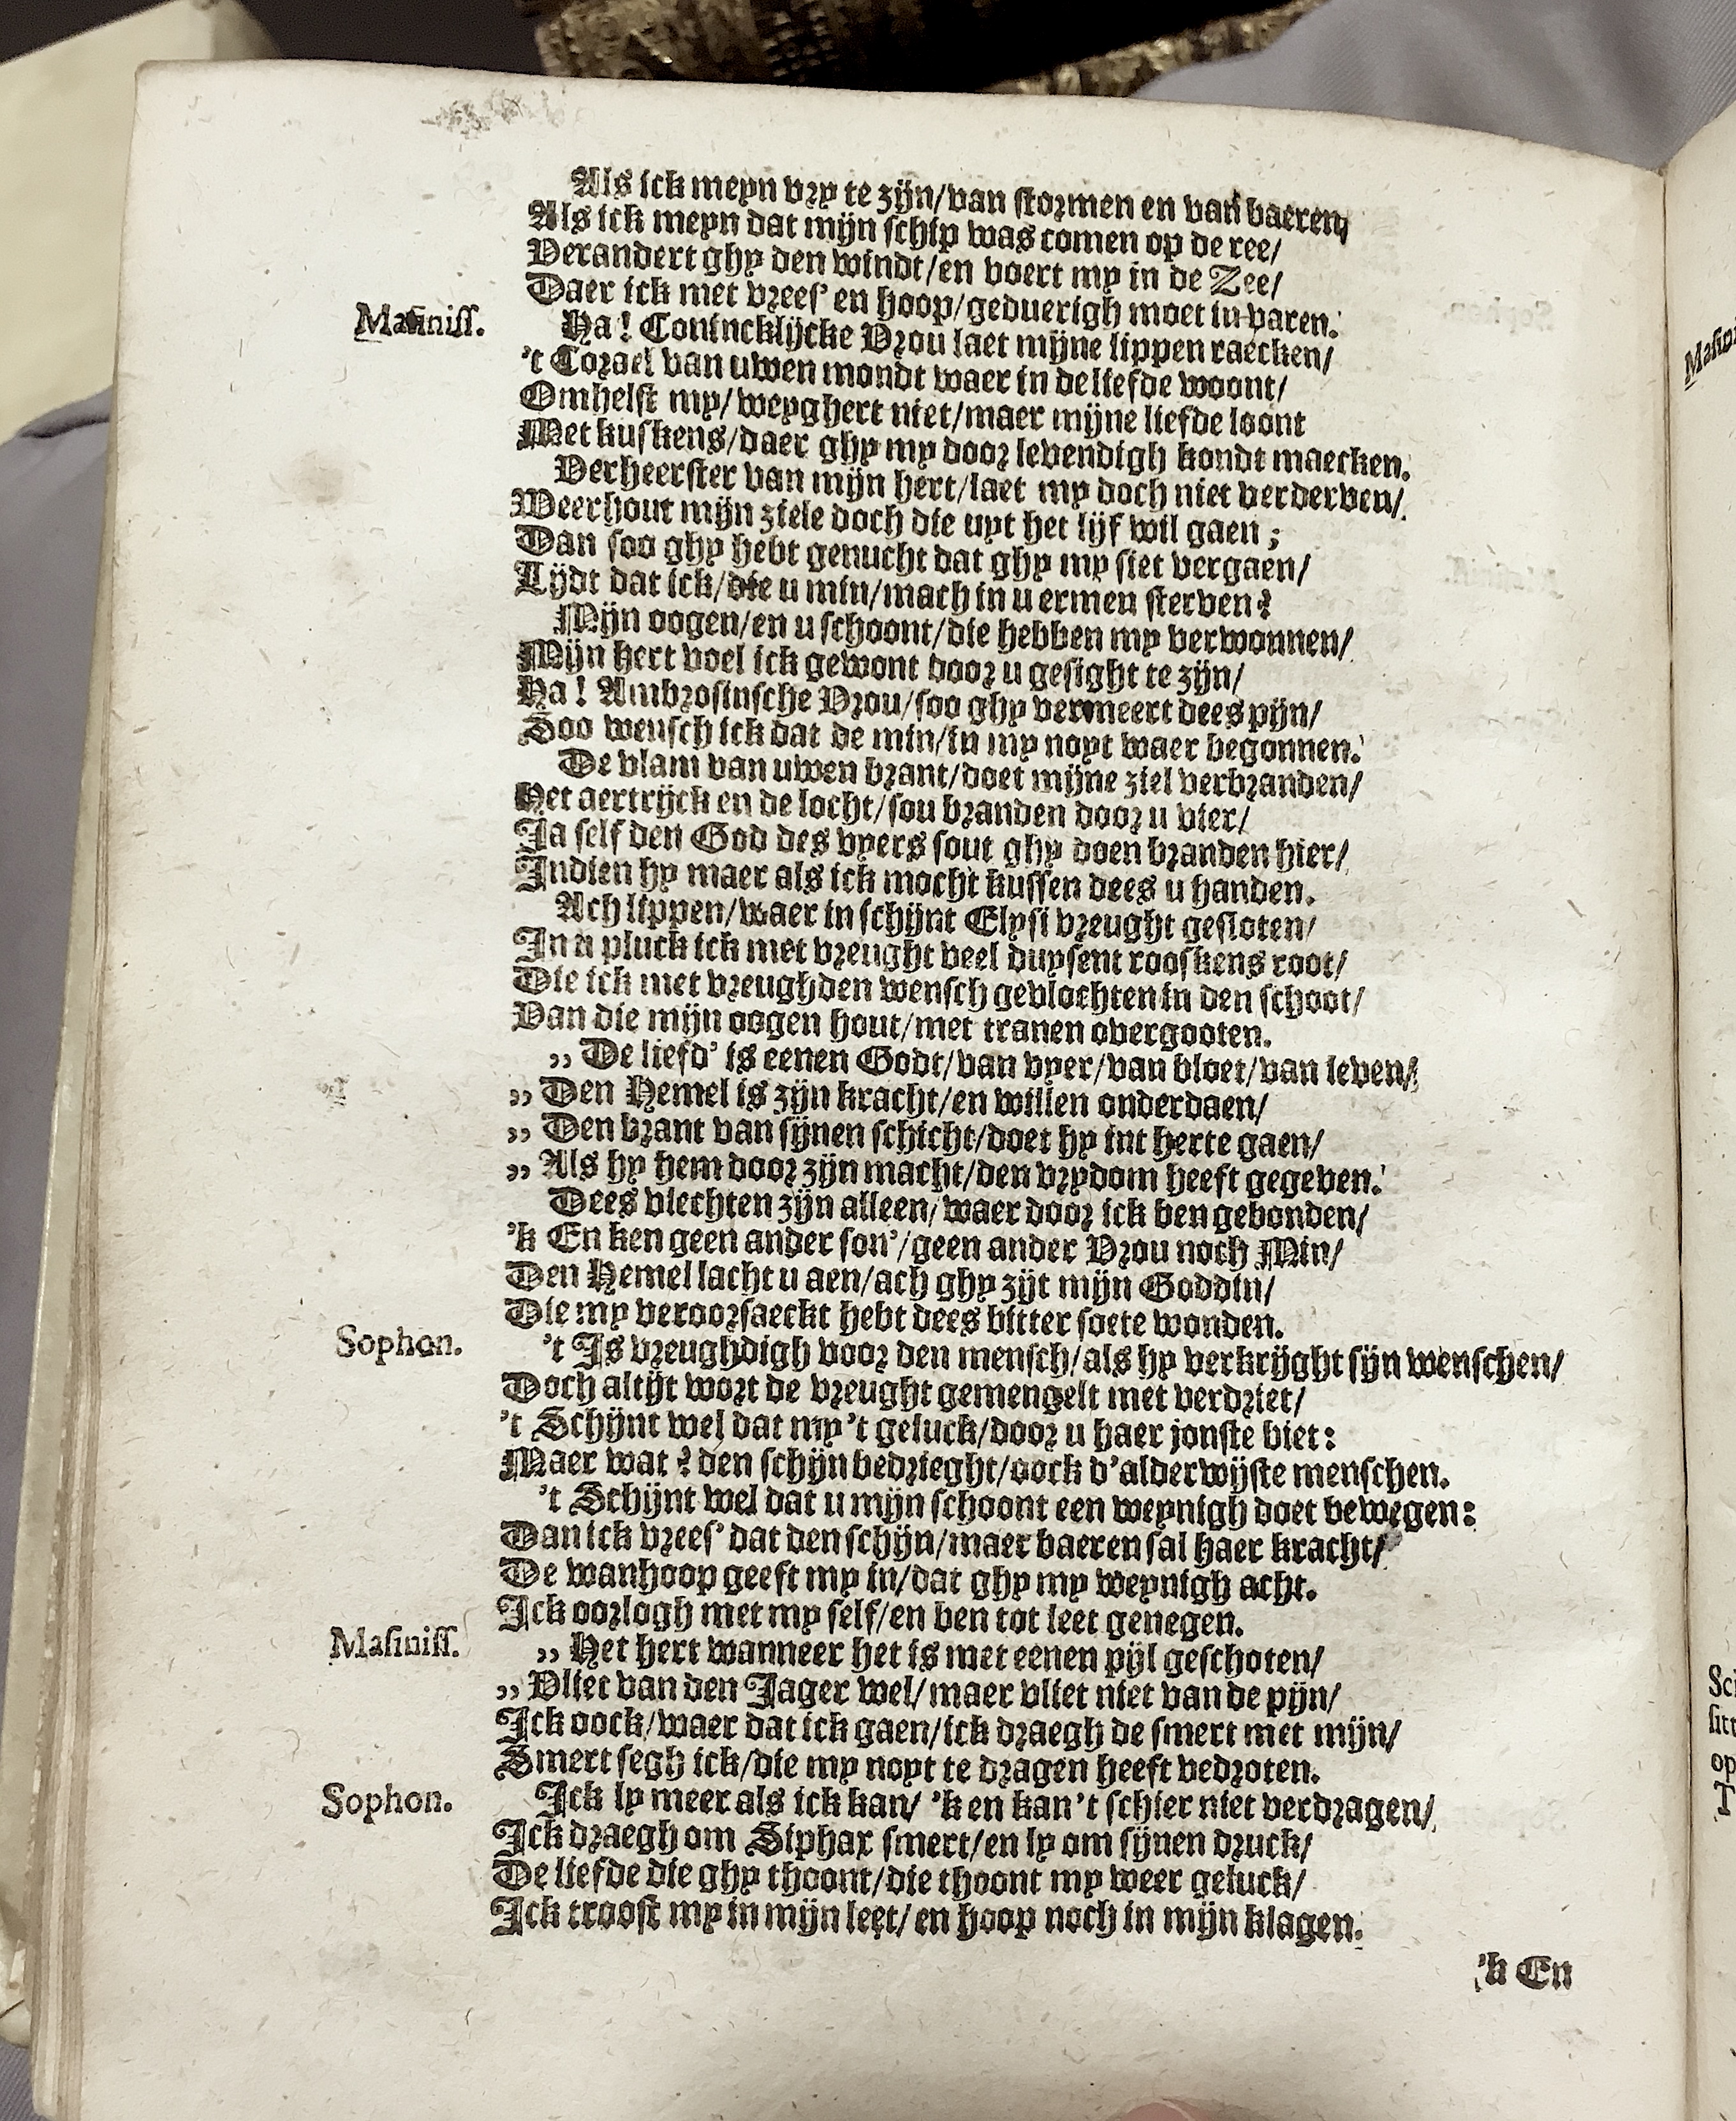 Als ick meyn vry te zijn/van stormen en van baeren/
Als ick meyn dat mijn schip was comen op de ree/
Verandert ghy den windt/en voert my in de Zee/
Daer ick met vrees' en hoop/geduerigh moet in varen.
Masiniss. Ha! Conincklijcke Vrou laet mijne lippen raecken/
't Corael van uwen mondt waer in de liefde woont/
Omhelst my/weyghert niet/maer mijne liefde loont
Met kuskens/daer ghy my door levendigh kondt maecken.
Verheerster van mijn hert/laet my doch niet verderven/
Weerhout mijn ziele doch die uyt het lijf wil gaen;
Dan soo ghy hebt genucht dat ghy my siet vergaen/
Lijdt dat ick/die u min/mach in u ermen sterven?
Mijn oogen/en u schoont/die hebben my verwonnen/
Mijn hert voel ick gewont door u gesight te zijn/
Ha! Ambrosinsche Vrou/soo ghy vermeert dees pijn/
Soo wensch ick dat de min/in my noyt waer begonnen.
De vlam van uwen brant/doet mijne ziel verbranden/
Het aertrijck en de locht/sou branden door u vier/
Ja self den God des vyers sout ghy doen branden hier/
Indien hy maer als ick mocht kussen dees u handen.
Ach lippen/waer in schijnt Elysi vreught gesloten/
In u pluck ick met vreught veel duysent rooskens root/
Die ick met vreughden wensch gevlochten in den schoot/
Van die mijn oogen hout/met tranen overgooten.
,, De liefd' is eenen Godt/van vyer/van bloet/van leven/
,, Den Hemel is zijn kracht/en willen onderdaen/
,, Den brant van sijnen schicht/doet hy int herte gaen/
,, Als hy hem door zijn macht/den vrydom heeft gegeven.
Dees vlechten zijn alleen/waer door ick ben gebonden/
'k En ken geen ander son'/geen ander Vrou noch Min/
Den Hemel lacht u aen/ach ghy zijt mijn Goddin/
Die my veroorsaeckt hebt dees bitter soete wonden.
Sophon. 't Is vreughdigh voor den mensch/als hy verkrijght sijn wenschen/
Doch altijt wort de vreught gemengelt met verdriet/
't Schijnt wel dat my 't geluck/door u haer jonste biet:
Maer wat? den schijn bedrieght/oock d'alderwijste menschen.
't Schijnt wel dat u mijn schoont een weynigh doet bewegen:
Dan ick vrees' dat den schijn/maer baeren sal haer kracht/
De wanhoop geeft my in/dat ghy my weynigh acht.
Ick oorlogh met my self/en ben tot leet genegen.
Masiniss. ,, Het hert wanneer het is met eenen pijl geschoten/
,, Vliet van den Jager wel/maer vliet niet van de pijn/
Ick oock/waer dat ick gaen/ick draegh de smert met mijn/
Smert segh ick/die my noyt te dragen heeft bedroten.
Sophon. Ick ly meer als ick kan/ 'k en kan 't schier niet verdragen/
Ick draegh om Siphax smert/en ly om sijnen druck/
De liefde die ghy thoont/die thoont my weer geluck/
Ick troost my in mijn leet/en hoop noch in mijn klagen.
'k En